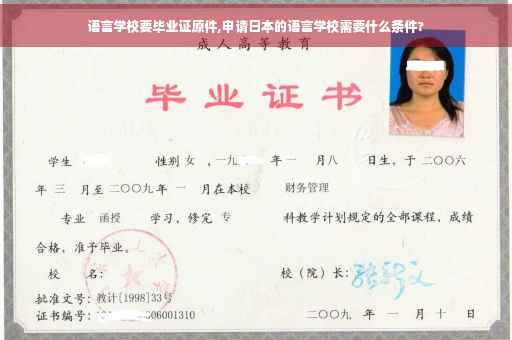 语言学校要毕业证原件,申请日本的语言学校需要什么条件?
成人高等教育
毕业证书
学生 性别 女 ,一九 年 一 月 八 日生,于 二〇〇六
年 三 月至 二〇〇九 年 一 月在本校 财务管理
专业 函授 学习,修完 专 科教学计划规定的全部课程,成绩
合格,准予毕业。
校 名: 校(院)长:
批准文号:教计[1998]33号
证书编号: 06001310 二〇〇九 年 一 月 十 日